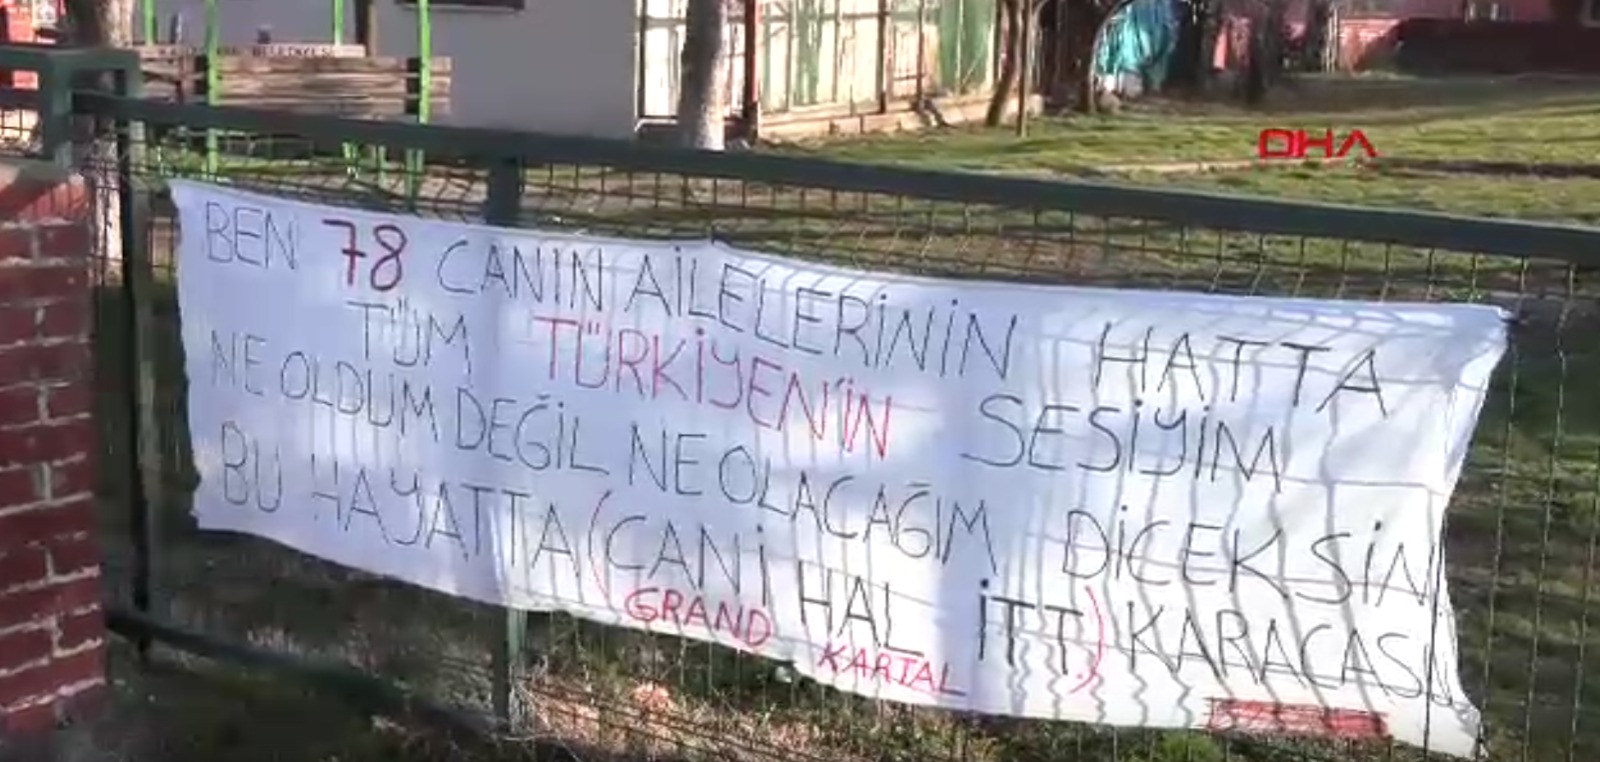 BELEDİYESİ
DHA
BEN 78 CANIN AİLELERİNİN HATTA
TÜM TÜRKİYEN'İN SESİYİM
NE OLDUM DEĞİL NE OLACAĞIM DİCEKSİN
BU HAYATTA (CANİ HAL İTT.) KARACASU
GRAND KARTAL